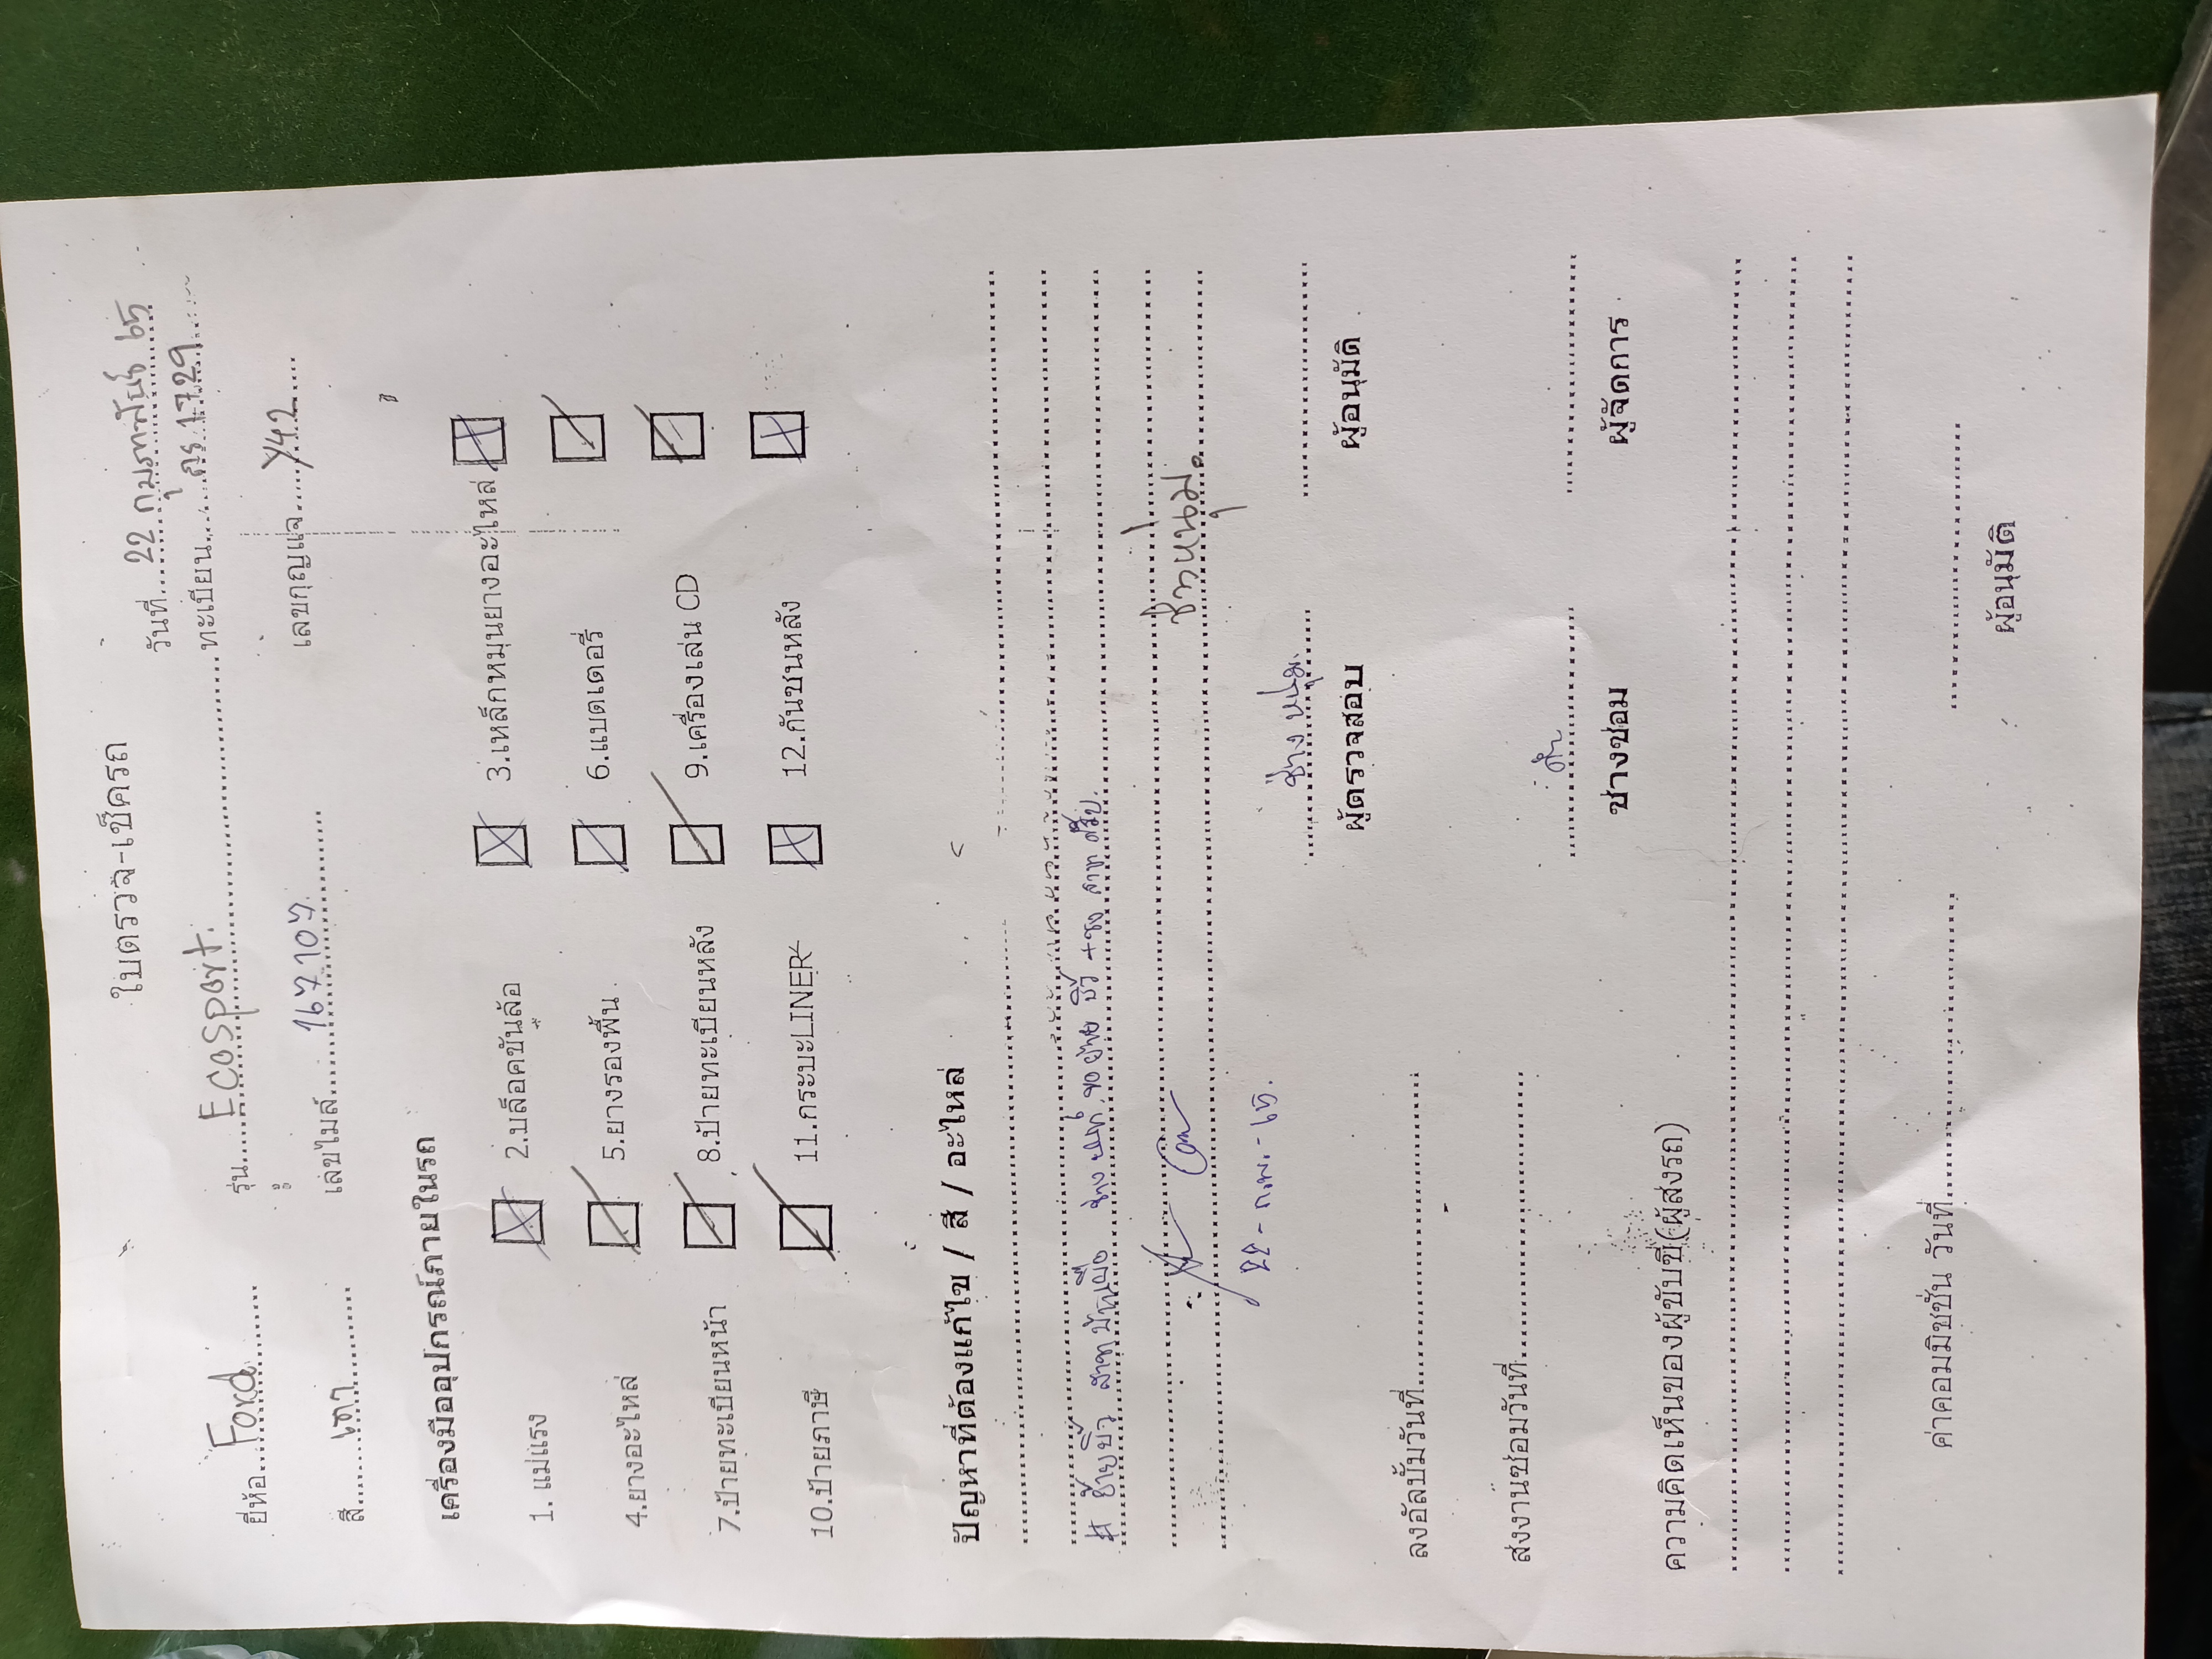 ใบตรวจ-เช็ครถ
วันที่....22 กุมภาพันธ์ 65
ยี่ห้อ...Ford....... รุ่น....Ecosport. ทะเบียน.... 1729
สี.......เทา....... เลขไมล์....167107. เลขกุญแจ....Y42.....
เครื่องมืออุปกรณ์ภายในรถ
1. แม่แรง 2.บล็อคขันล้อ 3.เหล็กหมุนยางอะไหล่
4.ยางอะไหล่ 5.ยางรองพื้น 6.แบตเตอรี่
7.ป้ายทะเบียนหน้า 8.ป้ายทะเบียนหลัง 9.เครื่องเล่น CD
10.ป้ายภาษี 11.กระบะLINER 12.กันชนหลัง
ปัญหาที่ต้องแก้ไข / สี / อะไหล่
ช่างหนุ่ม.
22 - ก.พ. - 65.
ช่าง หนุ่ม.
ผู้ตรวจสอบ ผู้อนุมัติ
ลงอัลบั้มวันที่
ส่งงานซ่อมวันที่ ดำ
ช่างซ่อม ผู้จัดการ
ความคิดเห็นของผู้ขับขี่(ผู้ส่งรถ)
ค่าคอมมิชชั่น วันที่
ผู้อนุมัติ